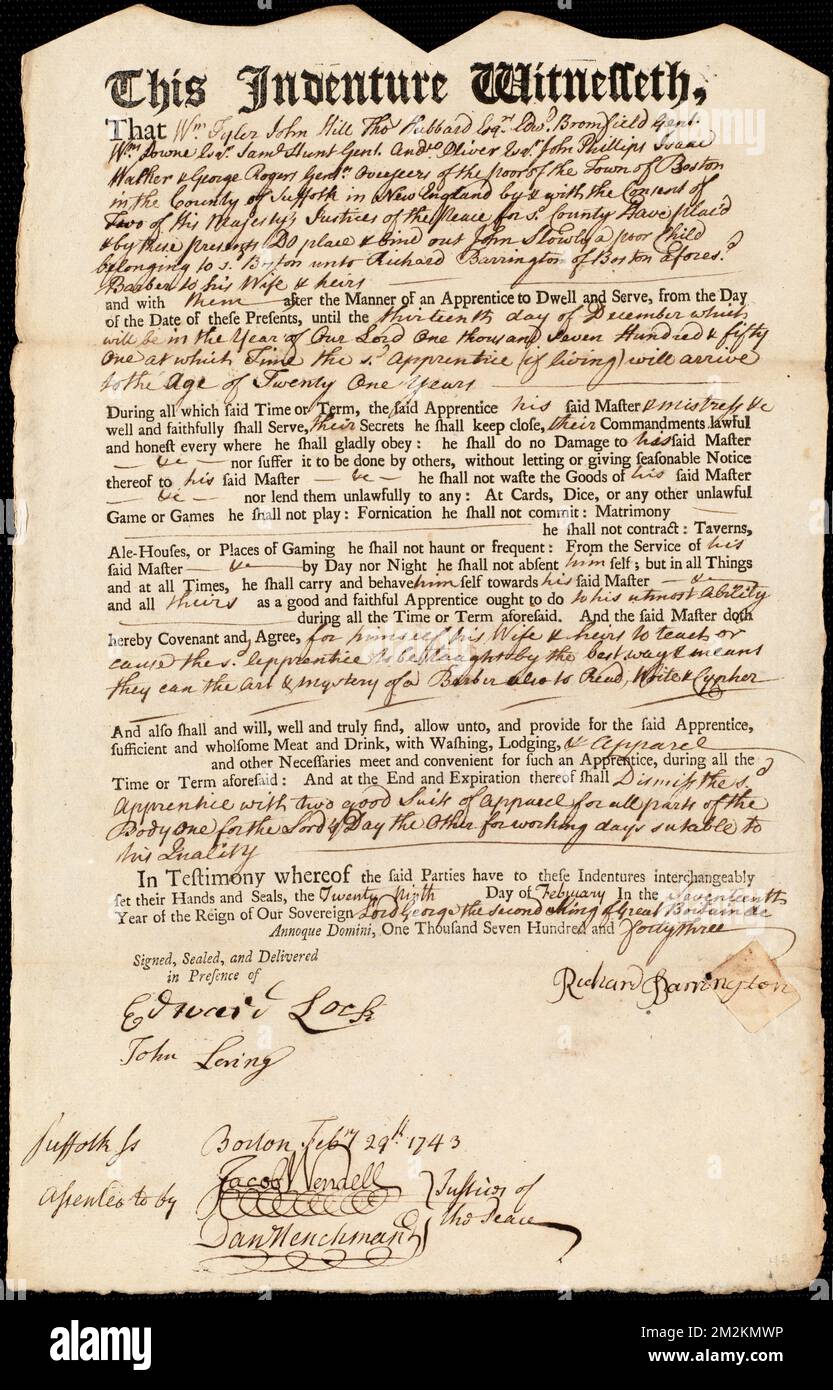 This Indenture Witnesseth,
That Wm. Tyler John Hill Tho.s Hubbard Esqrs. Edwd. Bromfield Gent.
Wm. Downe Esqr. Saml. Hunt Gent. Andw. Oliver Esqr. John Phillips Isaac
Walker & George Rogers Gentn. Overseers of the poor of the Town of Boston
in the County of Suffolk in New England by & with the Consent of
Two of His Majesty's Justices of the Peace for sd. County Have plac'd
& by these presents DO place & bind out John Slowly a poor Child
belonging to sd. Boston unto Richard Barrington of Boston afores.d
Barber to his Wife & heirs
and with them after the Manner of an Apprentice to Dwell and Serve, from the Day
of the Date of these Presents, until the thirteenth day of December which
will be in the Year of Our Lord One thousand Seven Hundred & fifty
One at which Time the sd. Apprentice (if living) will arrive
to the Age of Twenty One Years
During all which said Time or Term, the said Apprentice his said Master & mistress &c
well and faithfully shall Serve, their Secrets he shall keep close, their Commandments lawful
and honest every where he shall gladly obey: he shall do no Damage to his said Master
— &c — nor suffer it to be done by others, without letting or giving seasonable Notice
thereof to his said Master — &c — he shall not waste the Goods of his said Master
— &c — nor lend them unlawfully to any: At Cards, Dice, or any other unlawful
Game or Games he shall not play: Fornication he shall not commit: Matrimony —
he shall not contract: Taverns,
Ale-Houses, or Places of Gaming he shall not haunt or frequent: From the Service of his
said Master — &c — by Day nor Night he shall not absent him self; but in all Things
and at all Times, he shall carry and behave him self towards his said Master — &c
and all theirs as a good and faithful Apprentice ought to do to his utmost Ability
during all the Time or Term aforesaid. And the said Master doth
hereby Covenant and Agree, for himself his Wife & heirs to teach or
cause the sd. Apprentice to be taught by the best way & means
they can the Art & mystery of a Barber also to Read, Write & Cypher
And also shall and will, well and truly find, allow unto, and provide for the said Apprentice,
sufficient and wholsome Meat and Drink, with Washing, Lodging, & Apparel
and other Necessaries meet and convenient for such an Apprentice, during all the
Time or Term aforesaid: And at the End and Expiration thereof shall Dismiss the sd.
Apprentice with two good Suits of Apparel for all parts of the
Body One for the Lord's Day the Other for working days sutable to
his Quality
In Testimony whereof the said Parties have to these Indentures interchangeably
set their Hands and Seals, the Twenty Ninth Day of Febuary In the Seventeenth
Year of the Reign of Our Sovereign Lord George the second King of Great Britain &c
Annoque Domini, One Thousand Seven Hundred and forty three
Signed, Sealed, and Delivered
in Presence of
Richard Barrington
Edward Lock
John Loring
Suffolk ss Boston Febry 29th 1743
Assented to by Jacob Wendell
Dan Henchman
Justices of
the Peace
alamy
Image ID: 2M2KMWP
www.alamy.com